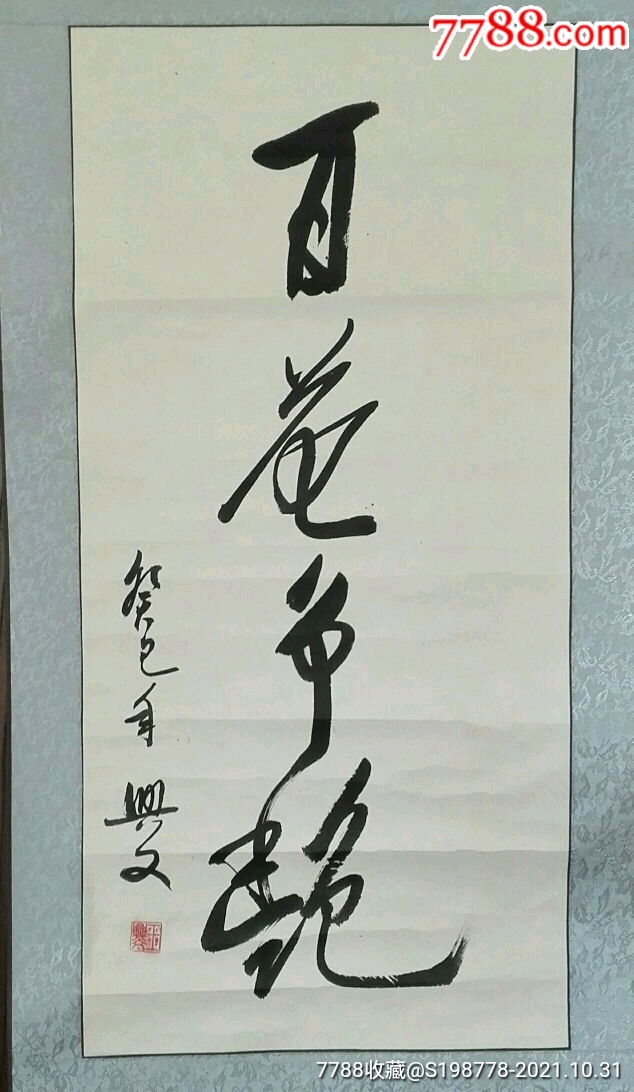 7788.com
百花争艳
癸巳年 興文
7788收藏@S198778-2021.10.31